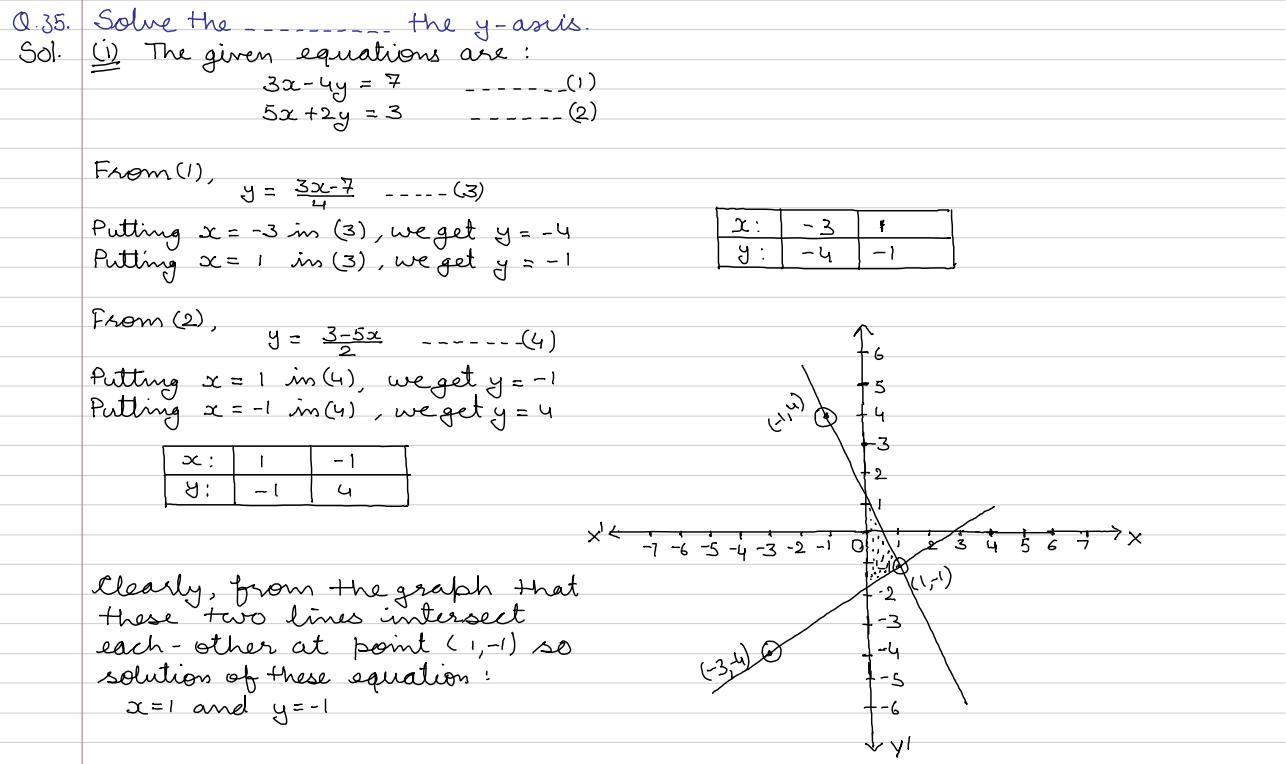 Q.35. Solve the ---------- the y-axis.
Sol. (i) The given equations are :
3x-4y = 7 -------(1)
5x+2y = 3 ------(2)
From (1),
y = (3x-7)/4 -----(3)
Putting x = -3 in (3), we get y = -4
Putting x = 1 in (3), we get y = -1
x: -3 1
y: -4 -1
From (2),
y = (3-5x)/2 -------(4)
Putting x = 1 in (4), we get y = -1
Putting x = -1 in (4), we get y = 4
x: 1 -1
y: -1 4
Clearly, from the graph that
these two lines intersect
each-other at point (1,-1) so
solution of these equation :
x=1 and y=-1
6
5
(-1,4)
4
3
2
1
X' -7 -6 -5 -4 -3 -2 -1 0 1 2 3 4 5 6 7 X
-1
(1,-1)
-2
-3
(-3,-4)
-4
-5
-6
Y'